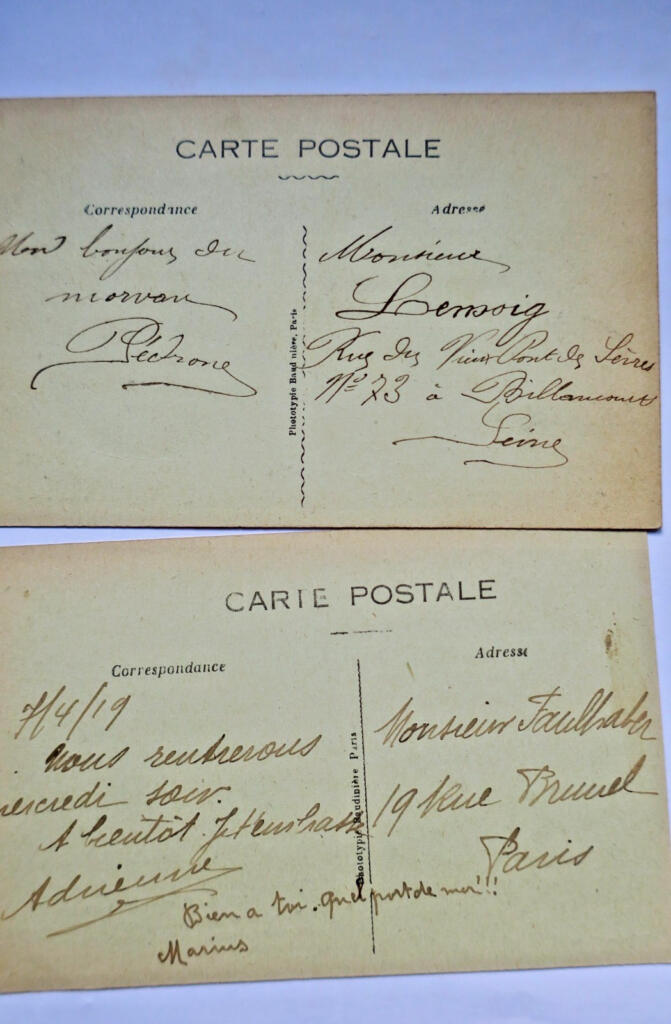 CARTE POSTALE
Correspondance
Adresse
Mon bonjour du
morvan
Monsieur
Rue du Vieux Pont de Sèvres
N° 73 à Billancourt
Seine
Phototypie Baudinière, Paris
CARTE POSTALE
Correspondance
Adresse
7/4/19
Nous rentrerons
mercredi soir.
A bientôt. Je t'embrasse
Adrienne
Bien a toi. quel port de moi!!
Marius
Monsieur Faulhaber
19 Rue Brunel
Paris
Phototypie Baudinière Paris